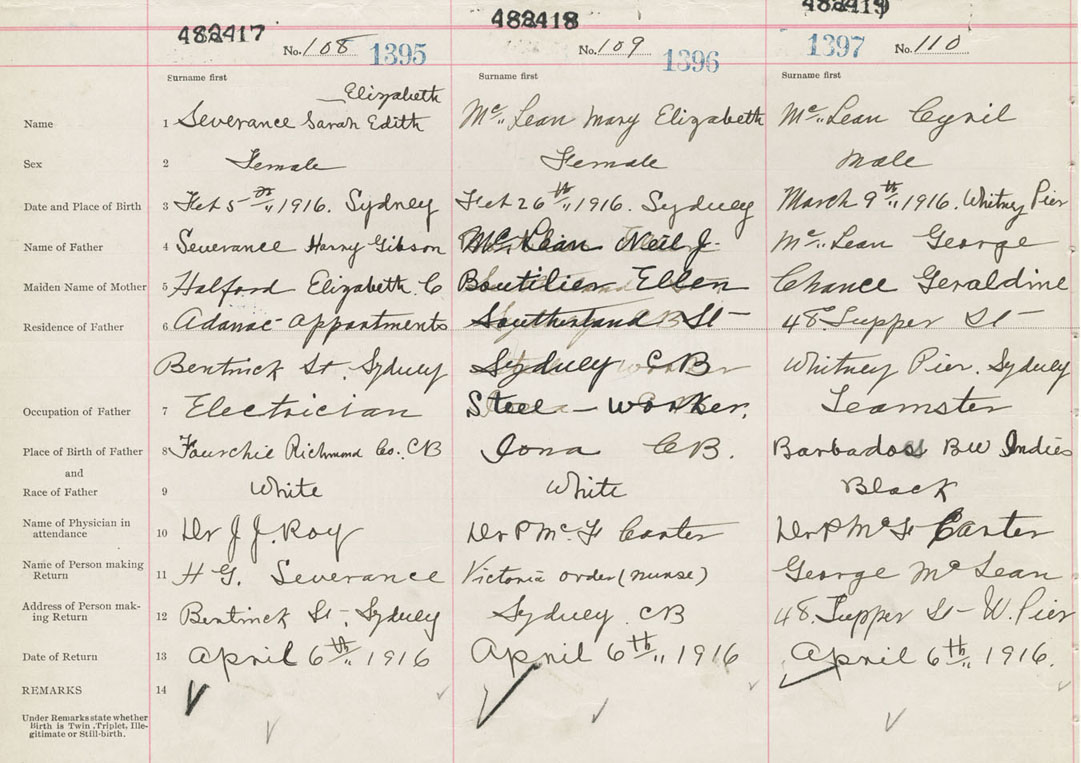 482417 482418 482419
No. 108 1395 No. 109 1396 1397 No. 110
Surname first Surname first Surname first
Elizabeth
Name 1 Severance Sarah Edith Mc Lean Mary Elizabeth Mc Lean Cyril
Sex 2 Female Female Male
Date and Place of Birth 3 Feb 5th 1916. Sydney Feb 26th 1916. Sydney March 9th 1916. Whitney Pier
Name of Father 4 Severance Harry Gibson Mc Lean Neil J. Mc Lean George
Maiden Name of Mother 5 Halford Elizabeth. C Boutilier Ellen Chance Geraldine
Residence of Father 6 Adanac Appartments Southerland St 48 Tupper St
Bentinck St. Sydney Sydney C B Whitney Pier. Sydney
Occupation of Father 7 Electrician Steel - worker. Teamster
Place of Birth of Father 8 Fourchie Richmond Co. CB Iona CB. Barbados BW Indies
and
Race of Father 9 White White Black
Name of Physician in
attendance 10 Dr J J. Roy Dr P Mc F Carter Dr P Mc F Carter
Name of Person making
Return 11 H G. Severance Victoria order (nurse) George Mc Lean
Address of Person mak-
ing Return 12 Bentinck St, Sydney Sydney CB 48. Tupper St - W. Pier
Date of Return 13 April 6th 1916 April 6th 1916 April 6th 1916.
REMARKS 14
Under Remarks state whether
Birth is Twin, Triplet, Ille-
gitimate or Still-birth.